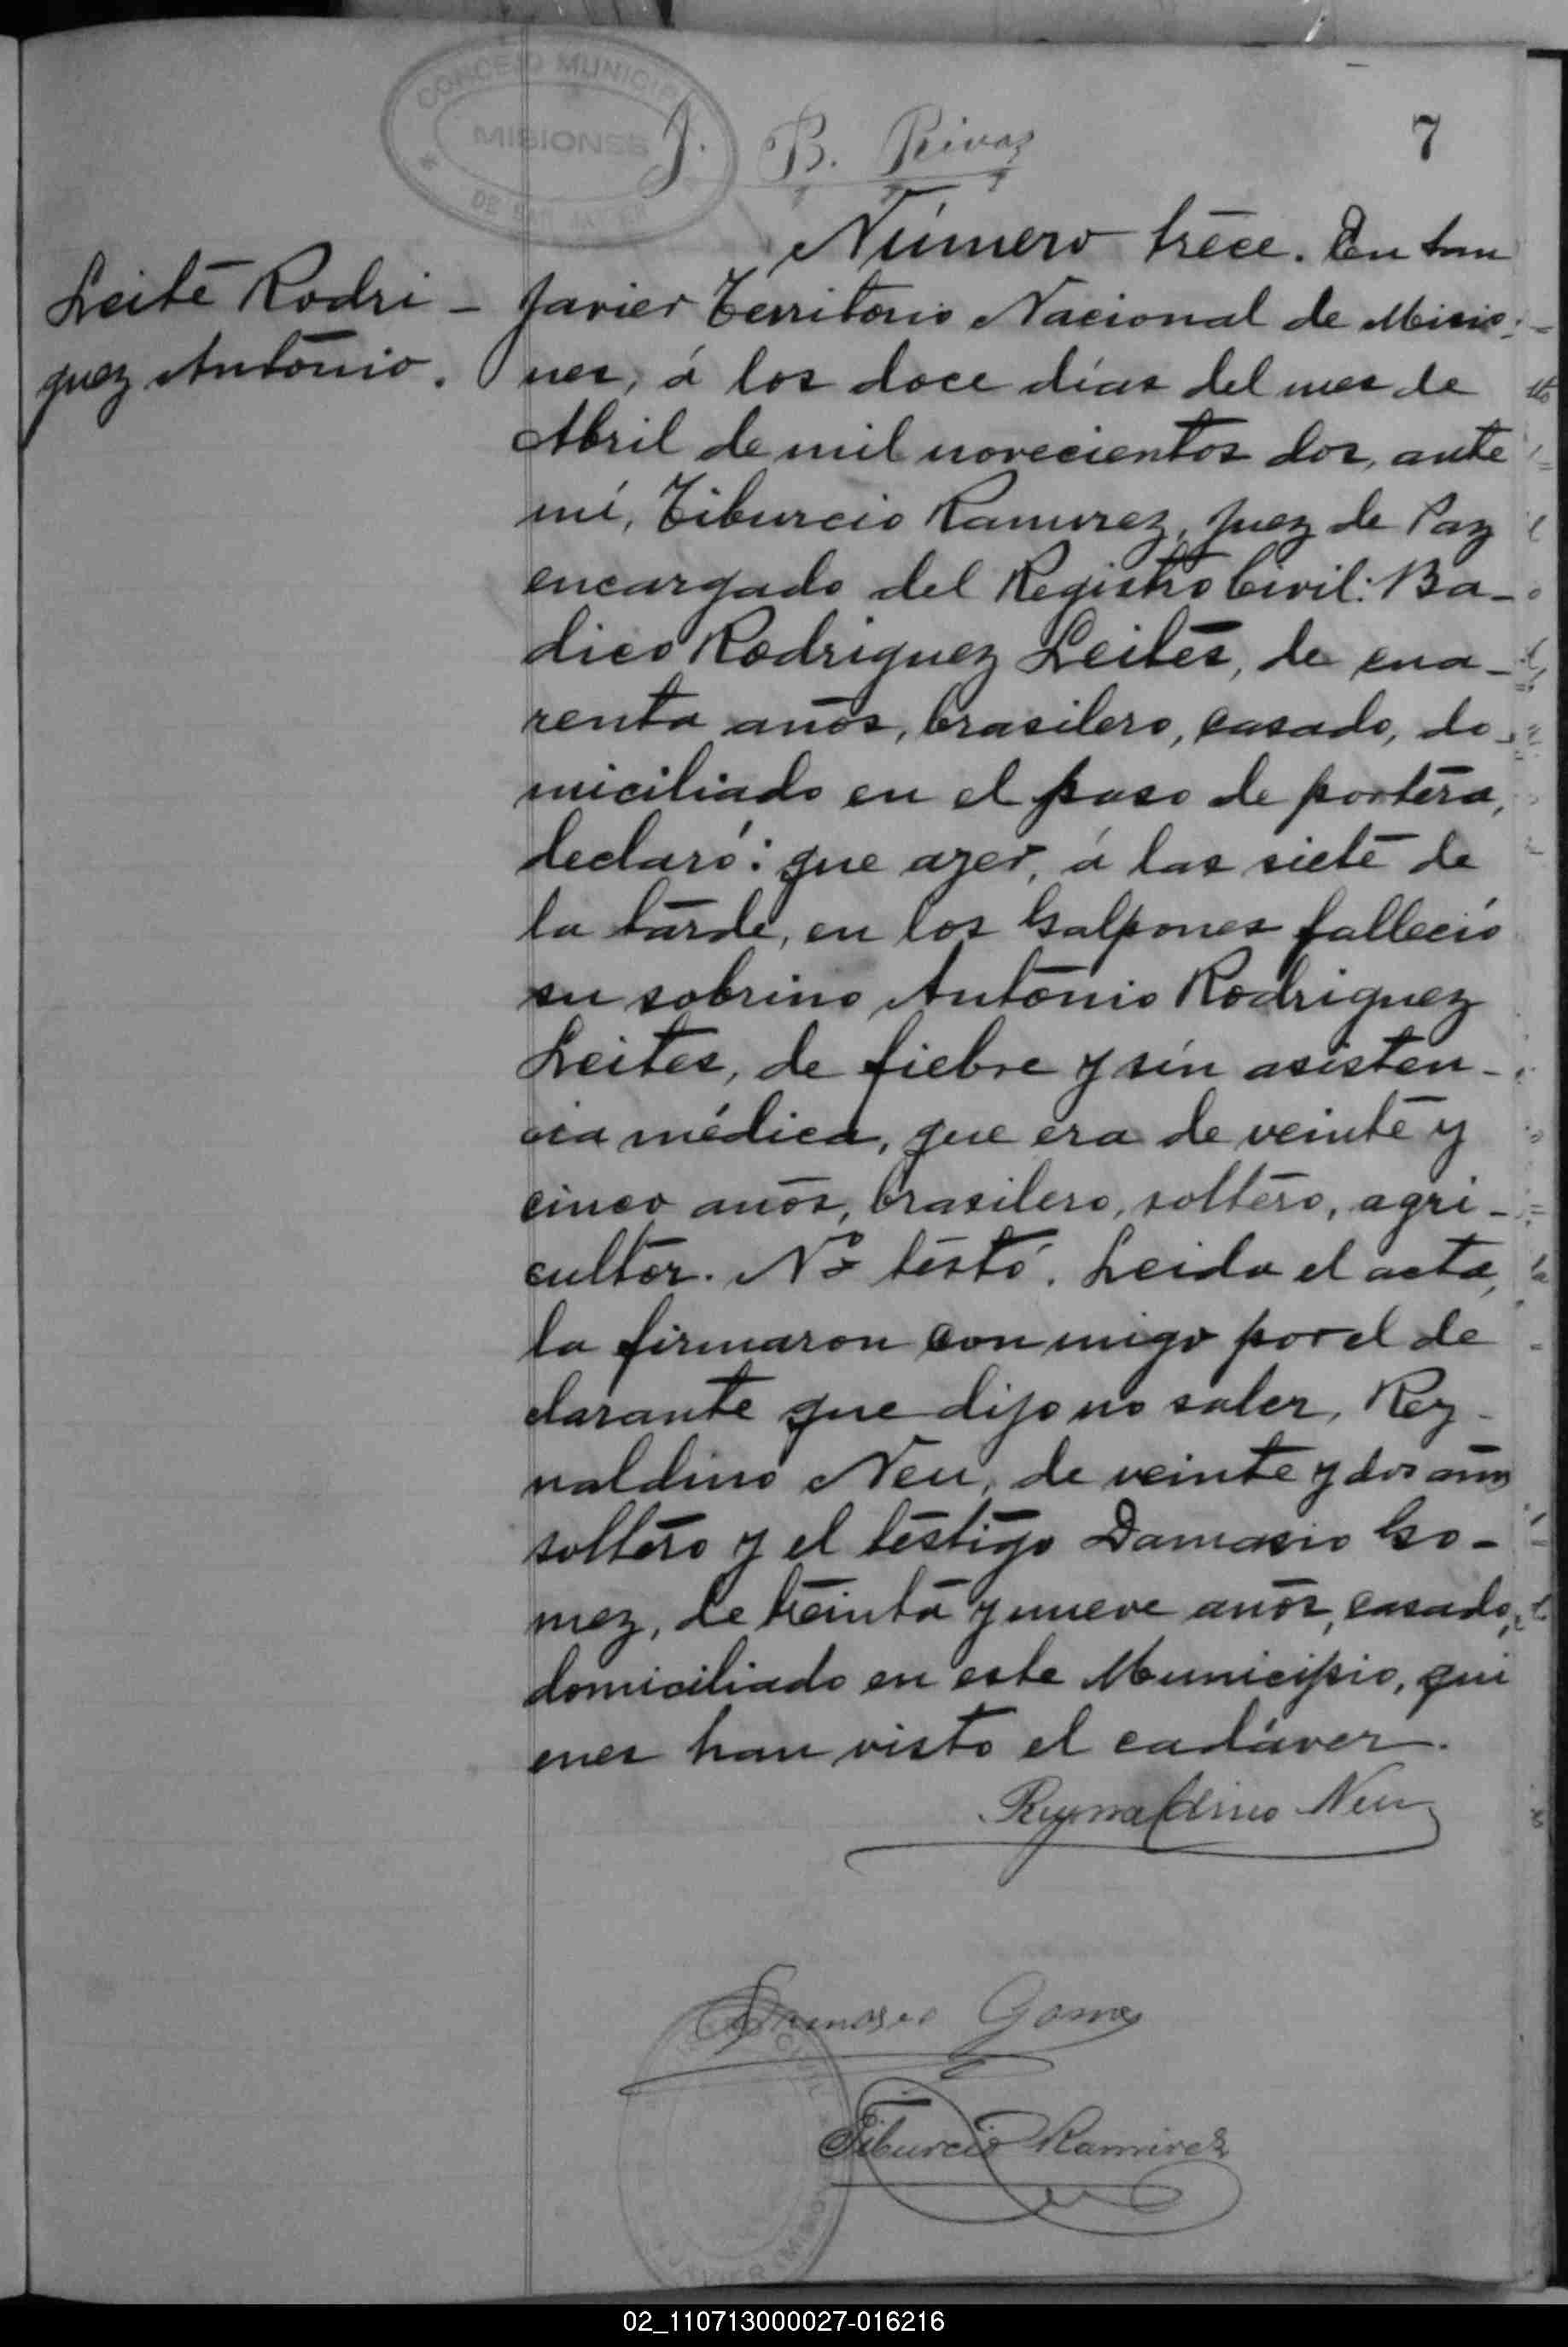 CONCEJO MUNICIPAL
MISIONES
DE SAN JAVIER
J. B. Rivas
7
Leite Rodri-
guez Antonio.
Número trece. En San
Javier Territorio Nacional de Misio-
nes, á los doce días del mes de
Abril de mil novecientos dos, ante
mí, Tiburcio Ramirez, Juez de Paz
encargado del Registro Civil: Ba-
dico Rodriguez Leites, de cua-
renta años, brasilero, casado, do-
miciliado en el paso de portera,
declaró: que ayer, á las siete de
la tarde, en los Galpones falleció
su sobrino Antonio Rodriguez
Leites, de fiebre y sin asisten-
cia médica, que era de veinte y
cinco años, brasilero, soltero, agri-
cultor. No testó. Leida el acta,
la firmaron conmigo por el de
clarante que dijo no saber, Rey-
naldino Neu, de veinte y dos años
soltero y el testigo Damasio Go-
mez, de treinta y nueve años, casado,
domiciliado en este Municipio, qui
enes han visto el cadáver.
Reynaldino Neu
Damasio Gomez
Tiburcio Ramirez
02_110713000027-016216